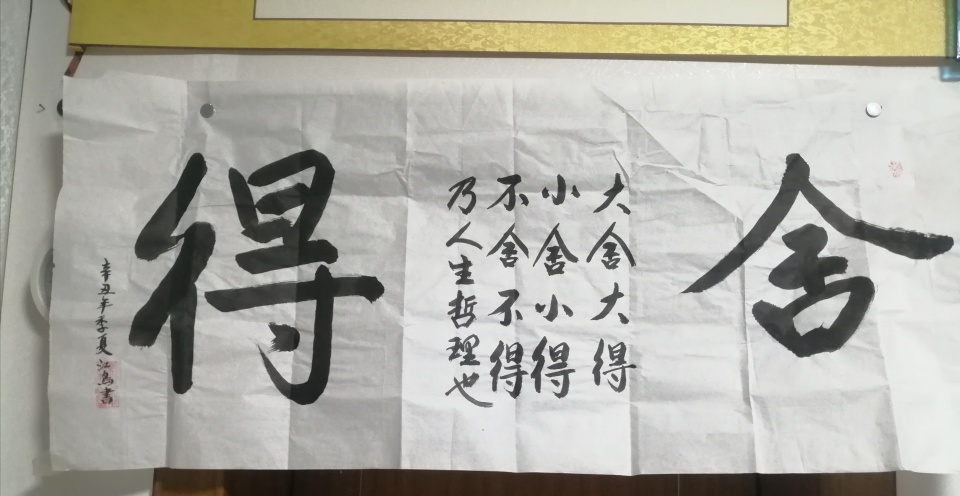 舍
大舍大得
小舍小得
不舍不得
乃人生哲理也
得
辛丑年季夏 江岛書